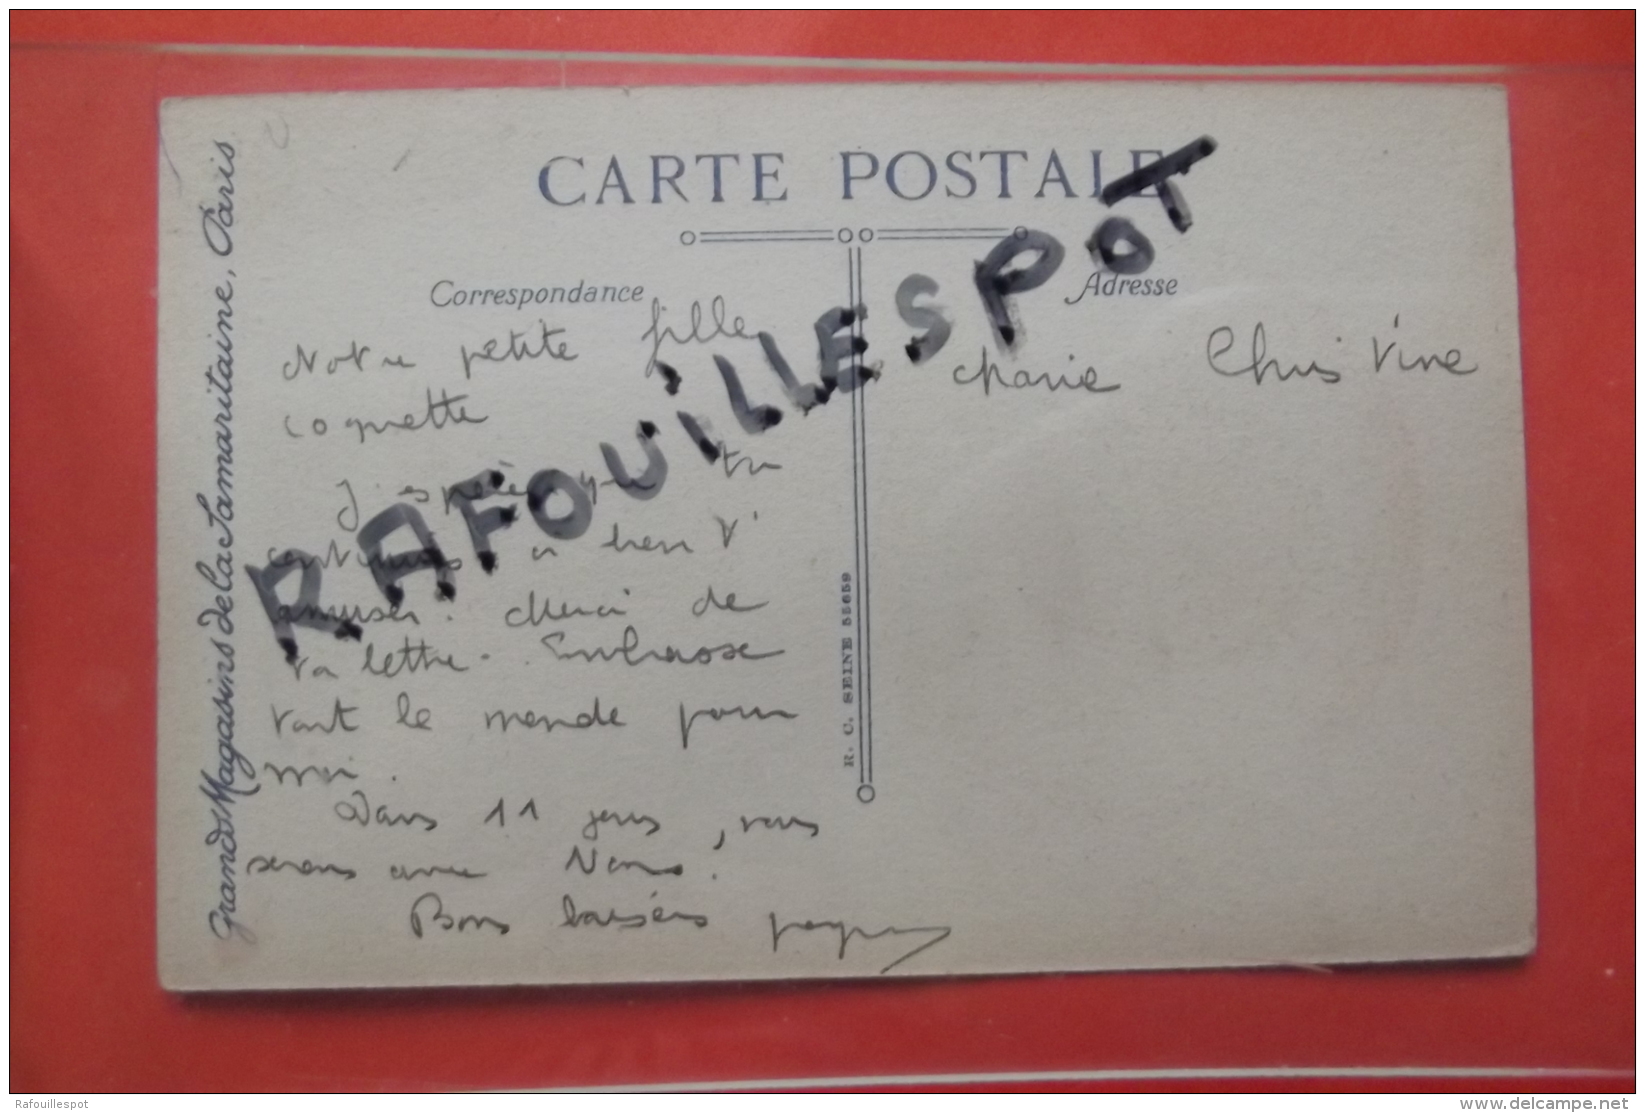 CARTE POSTALE
Correspondance
Adresse
Notre petite fille
coquette
J'espère que tu
continues a bien t'
amuser. Merci de
ta lettre. Embrasse
tout le monde pour
moi.
Dans 11 jours, nous
serons avec Vous.
Bons baisers
Marie Christine
Grands Magasins de la Samaritaine, Paris
R. C. SEINE 55659
RAFOUILLESPOT
Rafouillespot
www.delcampe.net